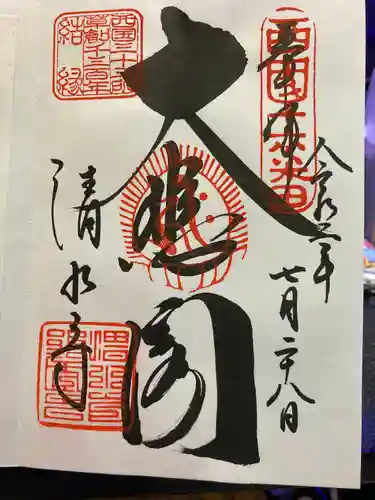 奉拝
西国十六番
令和二年
七月二十八日
大悲閣
西国三十三所
草創千三百年
結縁
清水寺